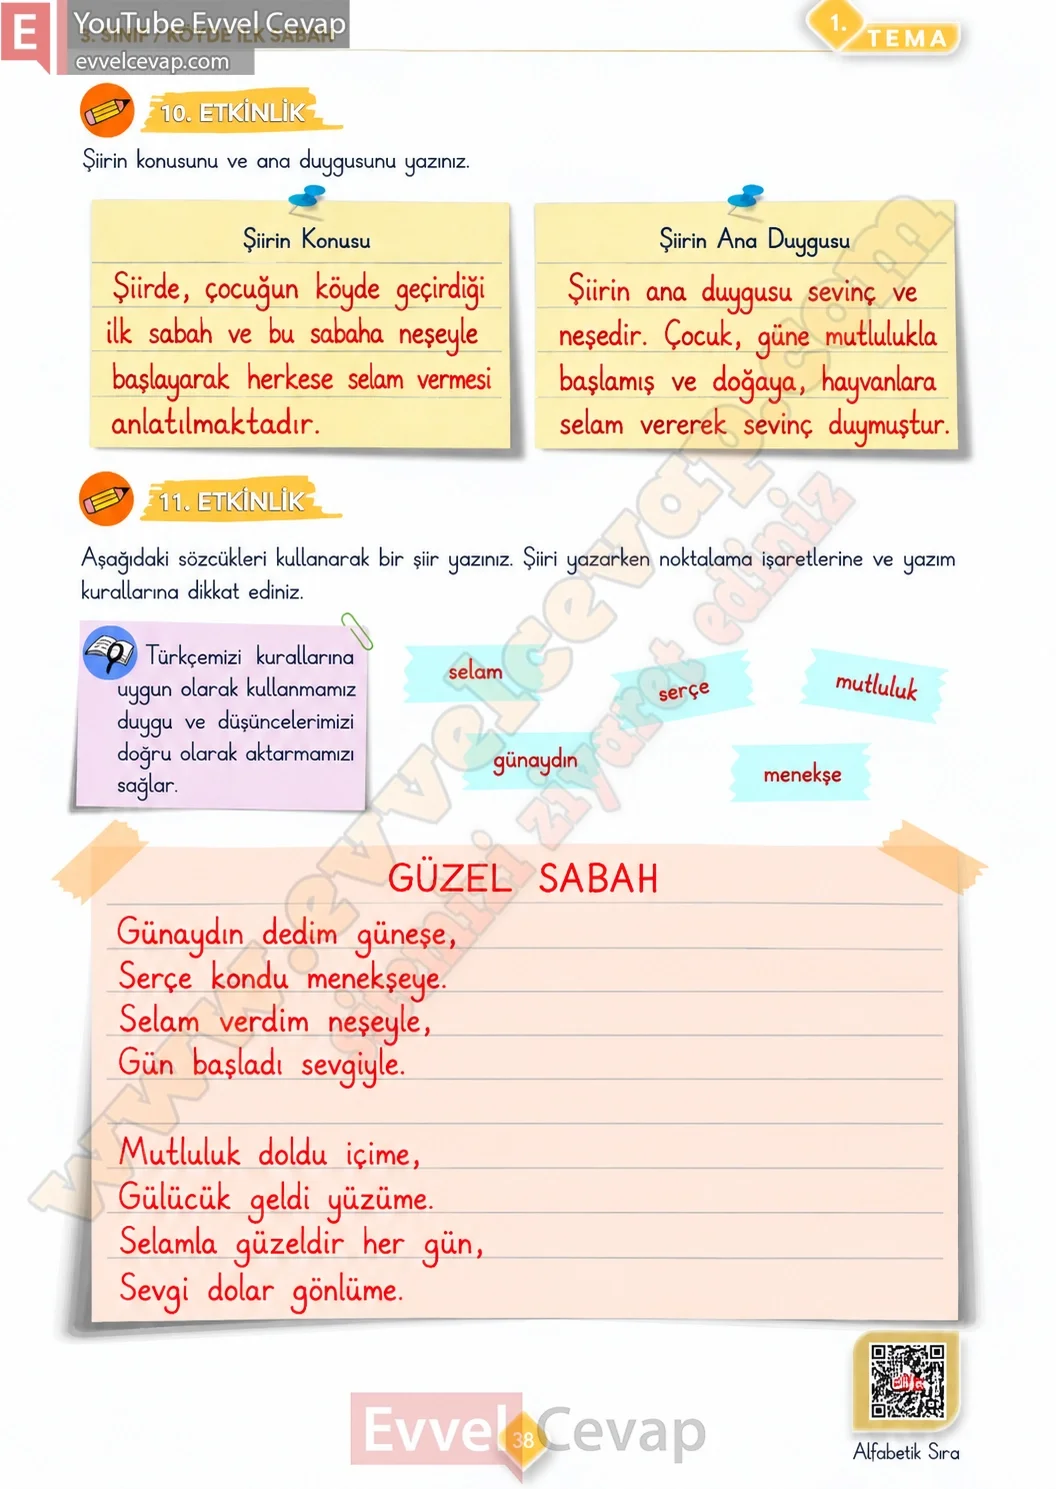 YouTube Evvel Cevap
3. SINIF / KÖYDE İLK SABAH
evvelcevap.com
1. TEMA
10. ETKİNLİK
Şiirin konusunu ve ana duygusunu yazınız.
Şiirin Konusu
Şiirde, çocuğun köyde geçirdiği
ilk sabah ve bu sabaha neşeyle
başlayarak herkese selam vermesi
anlatılmaktadır.
Şiirin Ana Duygusu
Şiirin ana duygusu sevinç ve
neşedir. Çocuk, güne mutlulukla
başlamış ve doğaya, hayvanlara
selam vererek sevinç duymuştur.
11. ETKİNLİK
Aşağıdaki sözcükleri kullanarak bir şiir yazınız. Şiiri yazarken noktalama işaretlerine ve yazım
kurallarına dikkat ediniz.
Türkçemizi kurallarına
uygun olarak kullanmamız
duygu ve düşüncelerimizi
doğru olarak aktarmamızı
sağlar.
selam
serçe
mutluluk
günaydın
menekşe
GÜZEL SABAH
Günaydın dedim güneşe,
Serçe kondu menekşeye.
Selam verdim neşeyle,
Gün başladı sevgiyle.
Mutluluk doldu içime,
Gülücük geldi yüzüme.
Selamla güzeldir her gün,
Sevgi dolar gönlüme.
www.evvelcevap.com
sitemizi ziyaret ediniz
Evvel Cevap
38
Alfabetik Sıra